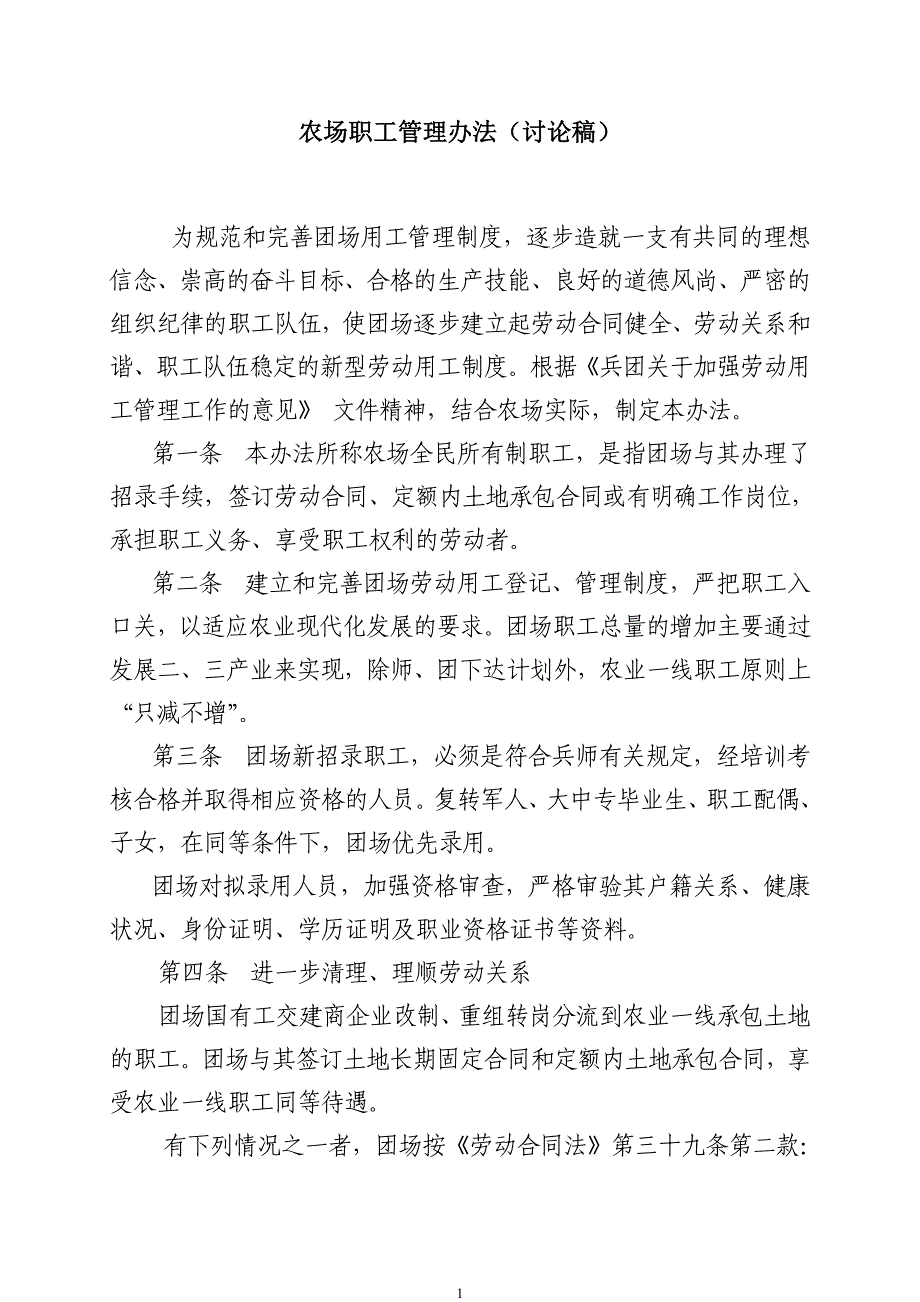 农场职工管理办法（讨论稿）
为规范和完善团场用工管理制度，逐步造就一支有共同的理想
信念、崇高的奋斗目标、合格的生产技能、良好的道德风尚、严密的
组织纪律的职工队伍，使团场逐步建立起劳动合同健全、劳动关系和
谐、职工队伍稳定的新型劳动用工制度。根据《兵团关于加强劳动用
工管理工作的意见》 文件精神，结合农场实际，制定本办法。
第一条　本办法所称农场全民所有制职工，是指团场与其办理了
招录手续，签订劳动合同、定额内土地承包合同或有明确工作岗位，
承担职工义务、享受职工权利的劳动者。
第二条　建立和完善团场劳动用工登记、管理制度，严把职工入
口关，以适应农业现代化发展的要求。团场职工总量的增加主要通过
发展二、三产业来实现，除师、团下达计划外，农业一线职工原则上
“只减不增”。
第三条　团场新招录职工，必须是符合兵师有关规定，经培训考
核合格并取得相应资格的人员。复转军人、大中专毕业生、职工配偶、
子女，在同等条件下，团场优先录用。
团场对拟录用人员，加强资格审查，严格审验其户籍关系、健康
状况、身份证明、学历证明及职业资格证书等资料。
第四条　进一步清理、理顺劳动关系
团场国有工交建商企业改制、重组转岗分流到农业一线承包土地
的职工。团场与其签订土地长期固定合同和定额内土地承包合同，享
受农业一线职工同等待遇。
有下列情况之一者，团场按《劳动合同法》第三十九条第二款：
1